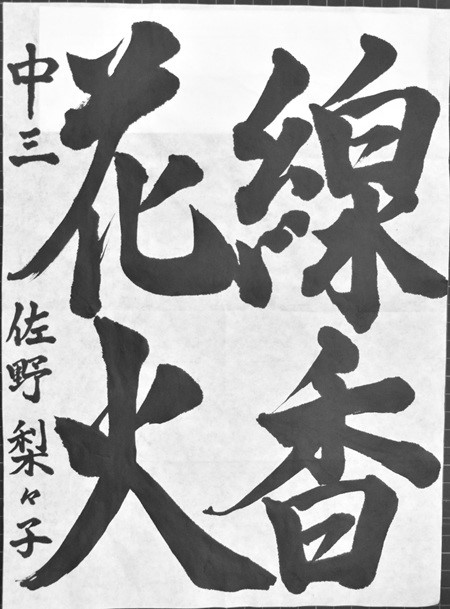 線香
花火
中三 佐野 梨々子